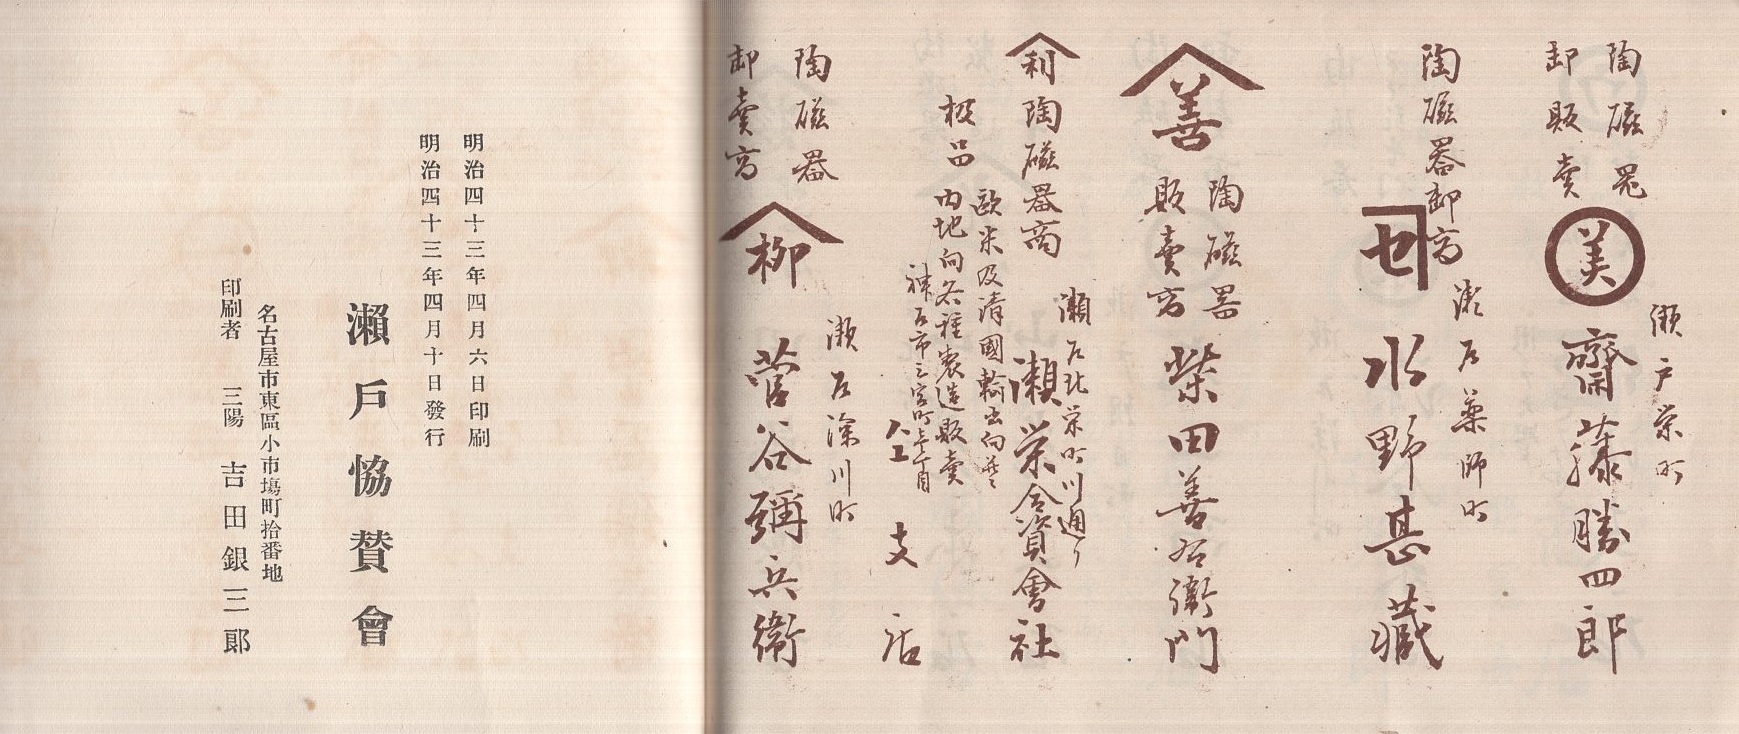 陶磁器
卸販賣
美
瀬戸栄町
齋藤勝四郎
陶磁器卸商
セ
瀬戸薬師町
水野甚藏
善
陶磁器
販賣商
柴田善右衛門
利
陶磁器商
瀬戸北栄町川通り
瀬栄合資會社
欧米及清國輸出向並ニ
内地向各種製造販賣
神戸市三宮町三丁目
仝支店
陶磁器
卸賣商
柳
瀬戸深川町
菅谷彌兵衛
明治四十三年四月六日印刷
明治四十三年四月十日發行
瀬戸恊賛會
名古屋市東區小市場町拾番地
印刷者 三陽 吉田銀三郎